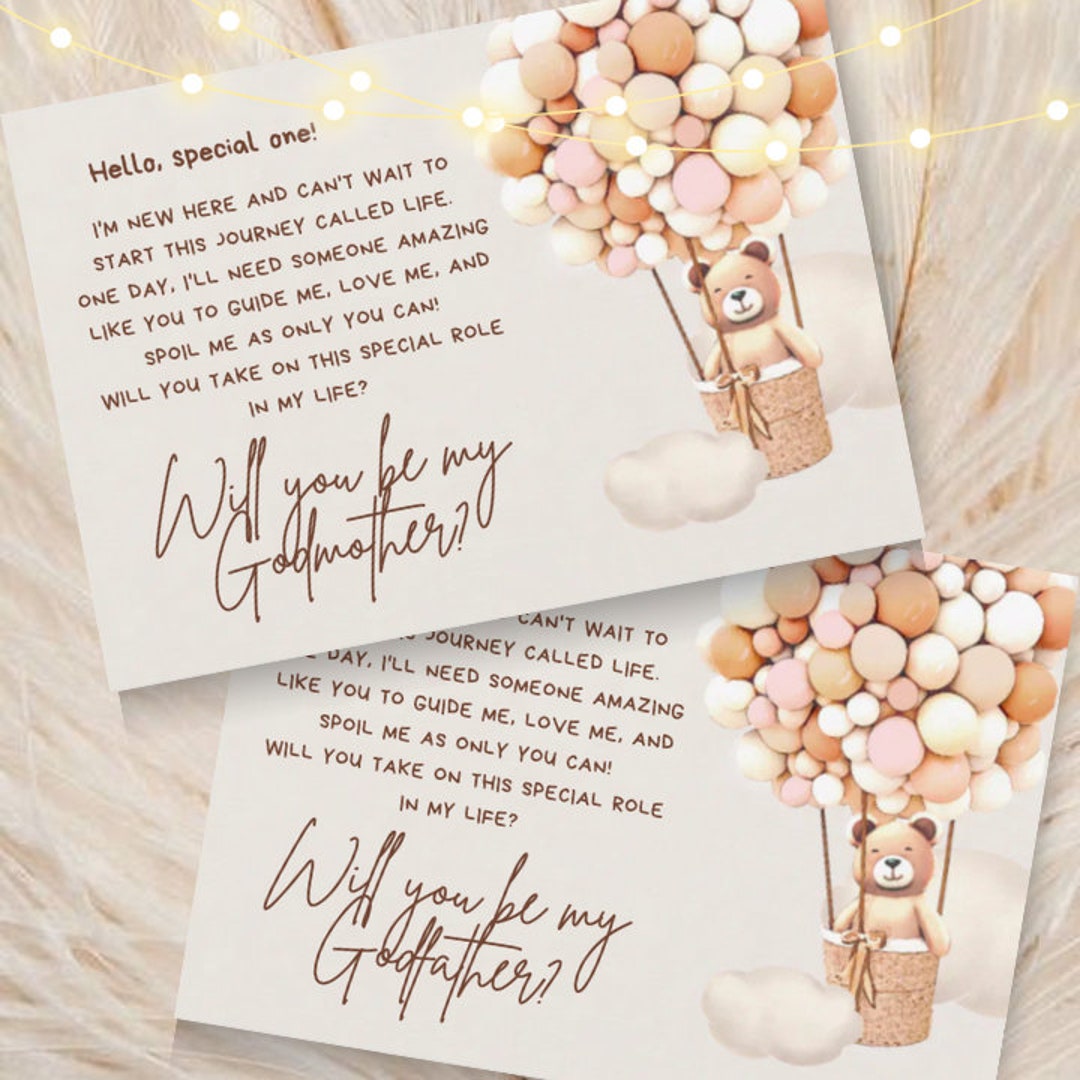 Hello, special one!
I'M NEW HERE AND CAN'T WAIT TO
START THIS JOURNEY CALLED LIFE.
ONE DAY, I'LL NEED SOMEONE AMAZING
LIKE YOU TO GUIDE ME, LOVE ME, AND
SPOIL ME AS ONLY YOU CAN!
WILL YOU TAKE ON THIS SPECIAL ROLE
IN MY LIFE?
Will you be my
Godmother?
CAN'T WAIT TO
JOURNEY CALLED LIFE.
DAY, I'LL NEED SOMEONE AMAZING
LIKE YOU TO GUIDE ME, LOVE ME, AND
SPOIL ME AS ONLY YOU CAN!
WILL YOU TAKE ON THIS SPECIAL ROLE
IN MY LIFE?
Will you be my
Godfather?